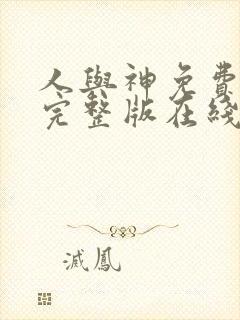 人與神免費
完整版在綫
滅鳳